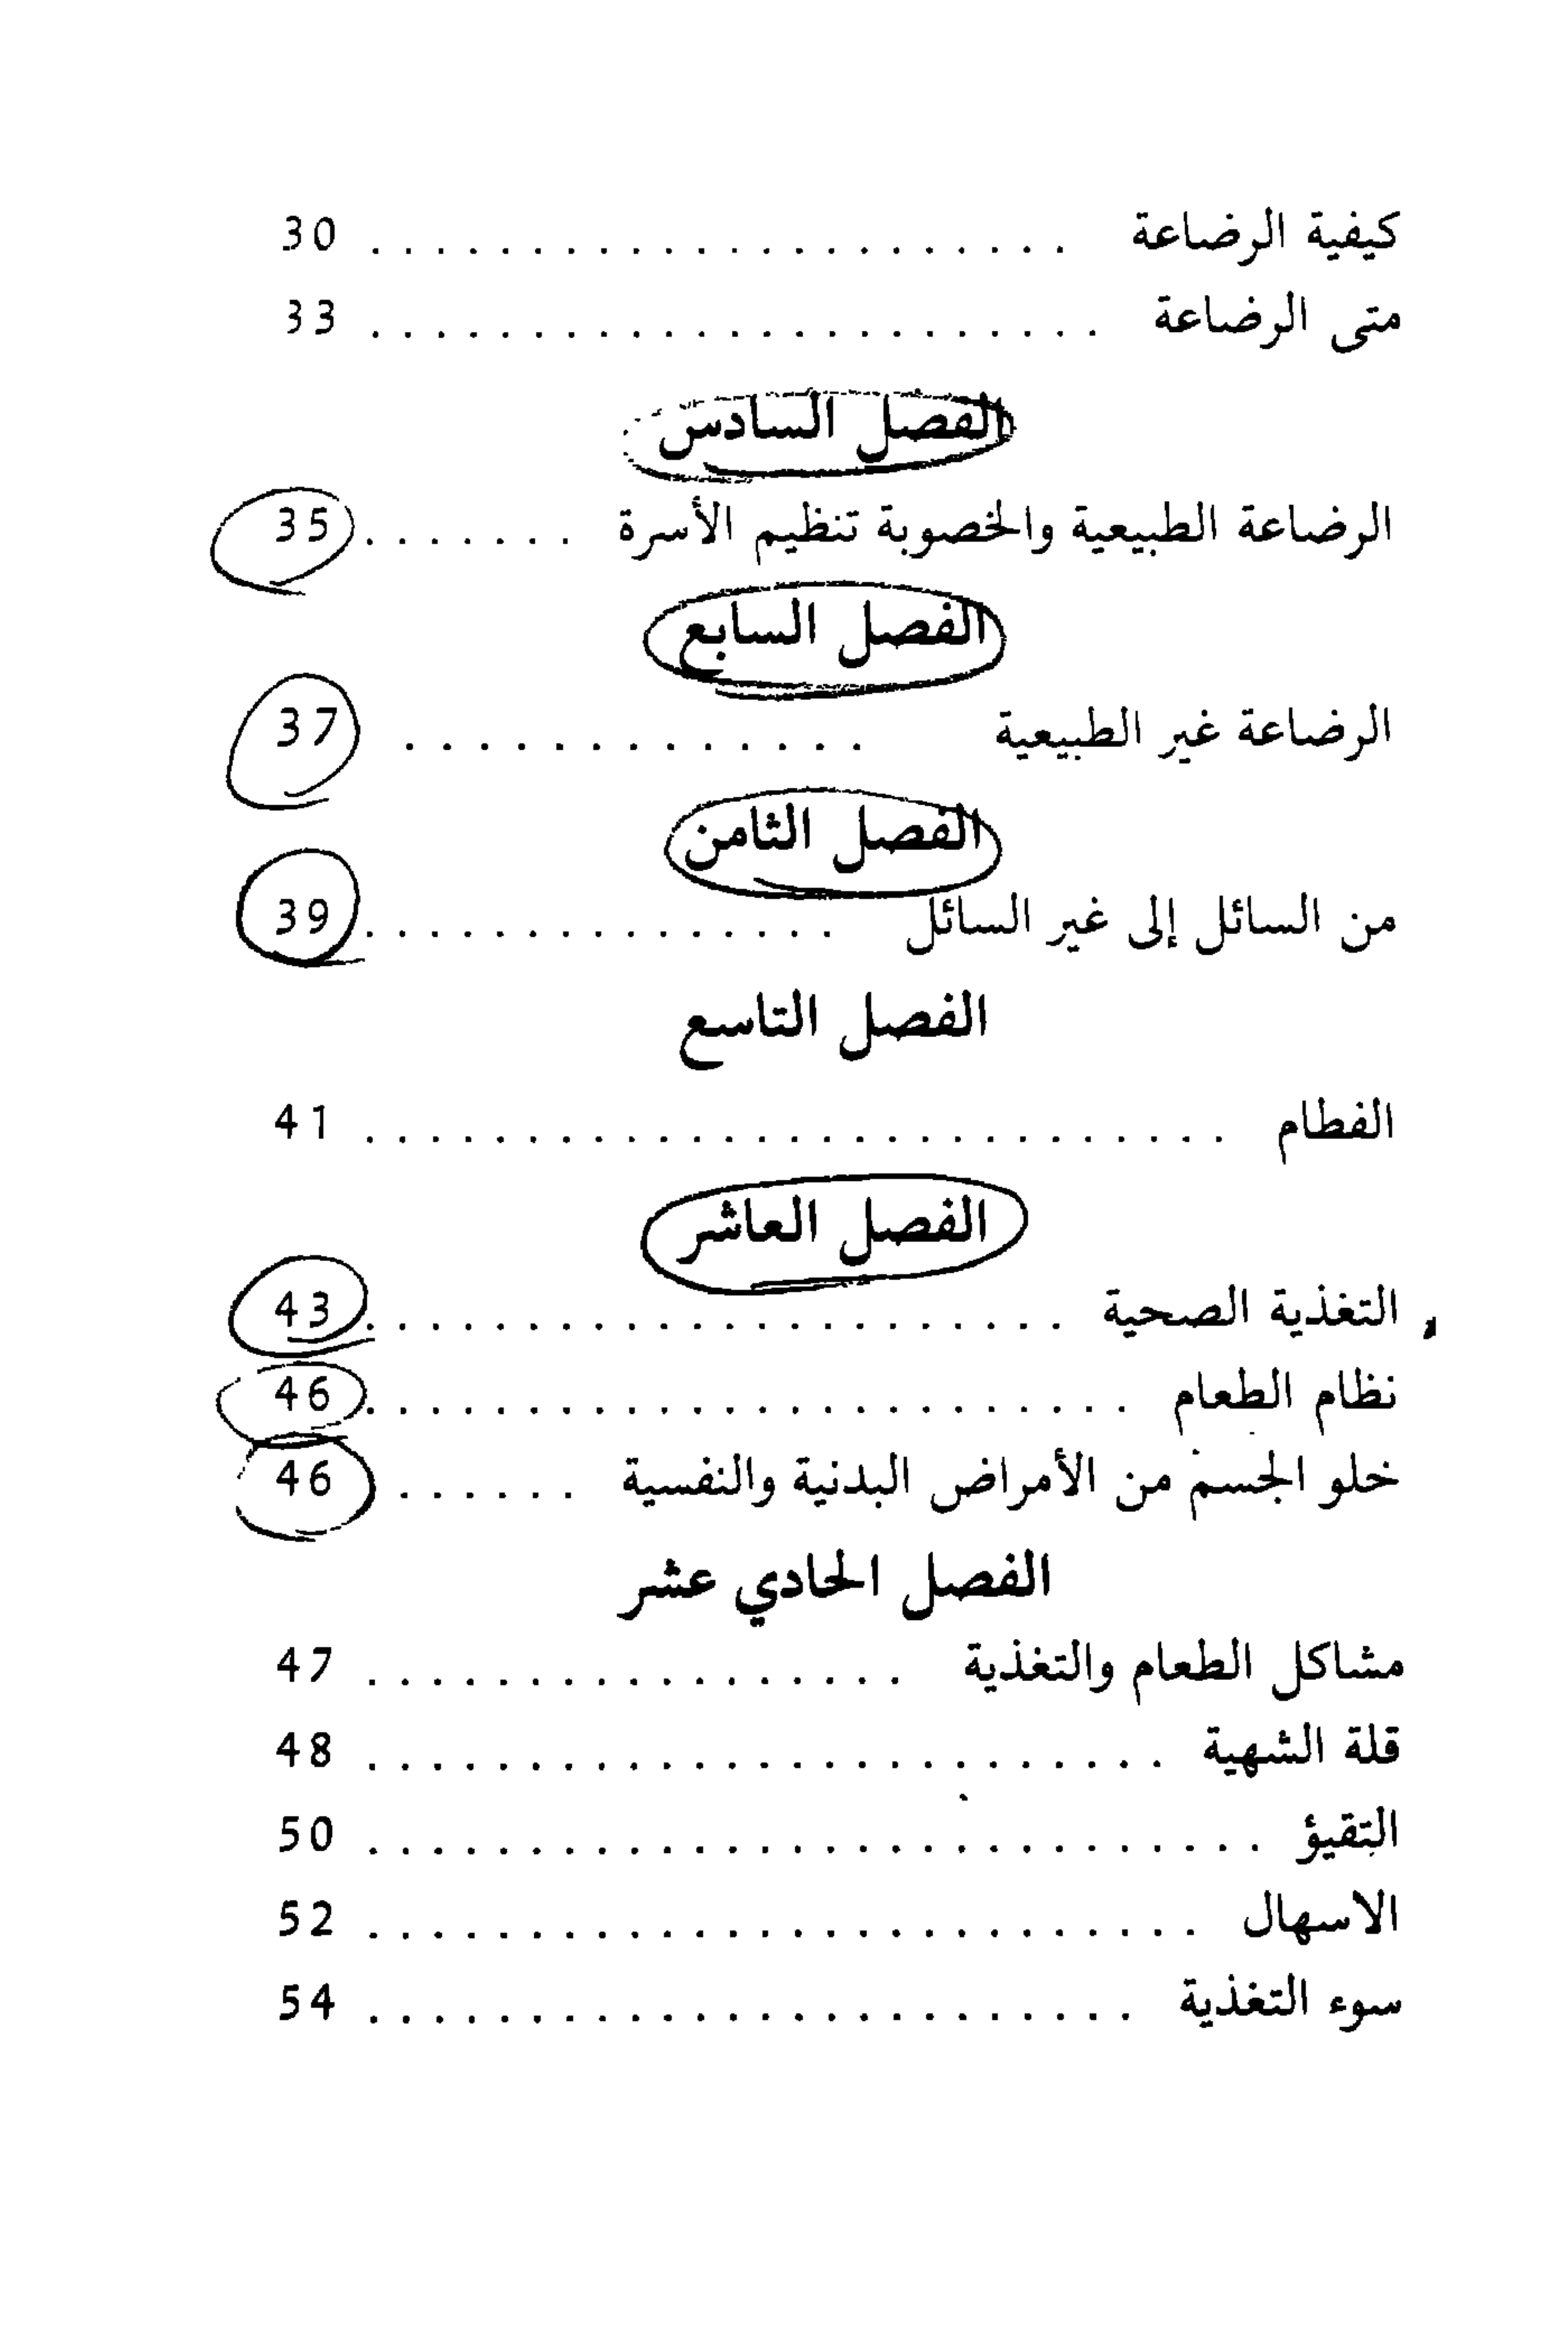 كيفية الرضاعة . . . . . . . . . . . . . . . . . . . . . . 30
متى الرضاعة . . . . . . . . . . . . . . . . . . . . . . . 33
الفصل السادس
الرضاعة الطبيعية والخصوبة تنظيم الأسرة . . . . . . . 35
الفصل السابع
الرضاعة غير الطبيعية . . . . . . . . . . . . . 37
الفصل الثامن
من السائل إلى غير السائل . . . . . . . . . . . . . . . 39
الفصل التاسع
الفطام . . . . . . . . . . . . . . . . . . . . . . . . . . . 41
الفصل العاشر
التغذية الصحية . . . . . . . . . . . . . . . . . . . . . . 43
نظام الطعام . . . . . . . . . . . . . . . . . . . . . . . . 46
خلو الجسم من الأمراض البدنية والنفسية . . . . . . 46
الفصل الحادي عشر
مشاكل الطعام والتغذية . . . . . . . . . . . . . . . . . 47
قلة الشهية . . . . . . . . . . . . . . . . . . . . . . . . . 48
التقيؤ . . . . . . . . . . . . . . . . . . . . . . . . . . . . 50
الاسهال . . . . . . . . . . . . . . . . . . . . . . . . . . 52
سوء التغذية . . . . . . . . . . . . . . . . . . . . . . . . 54